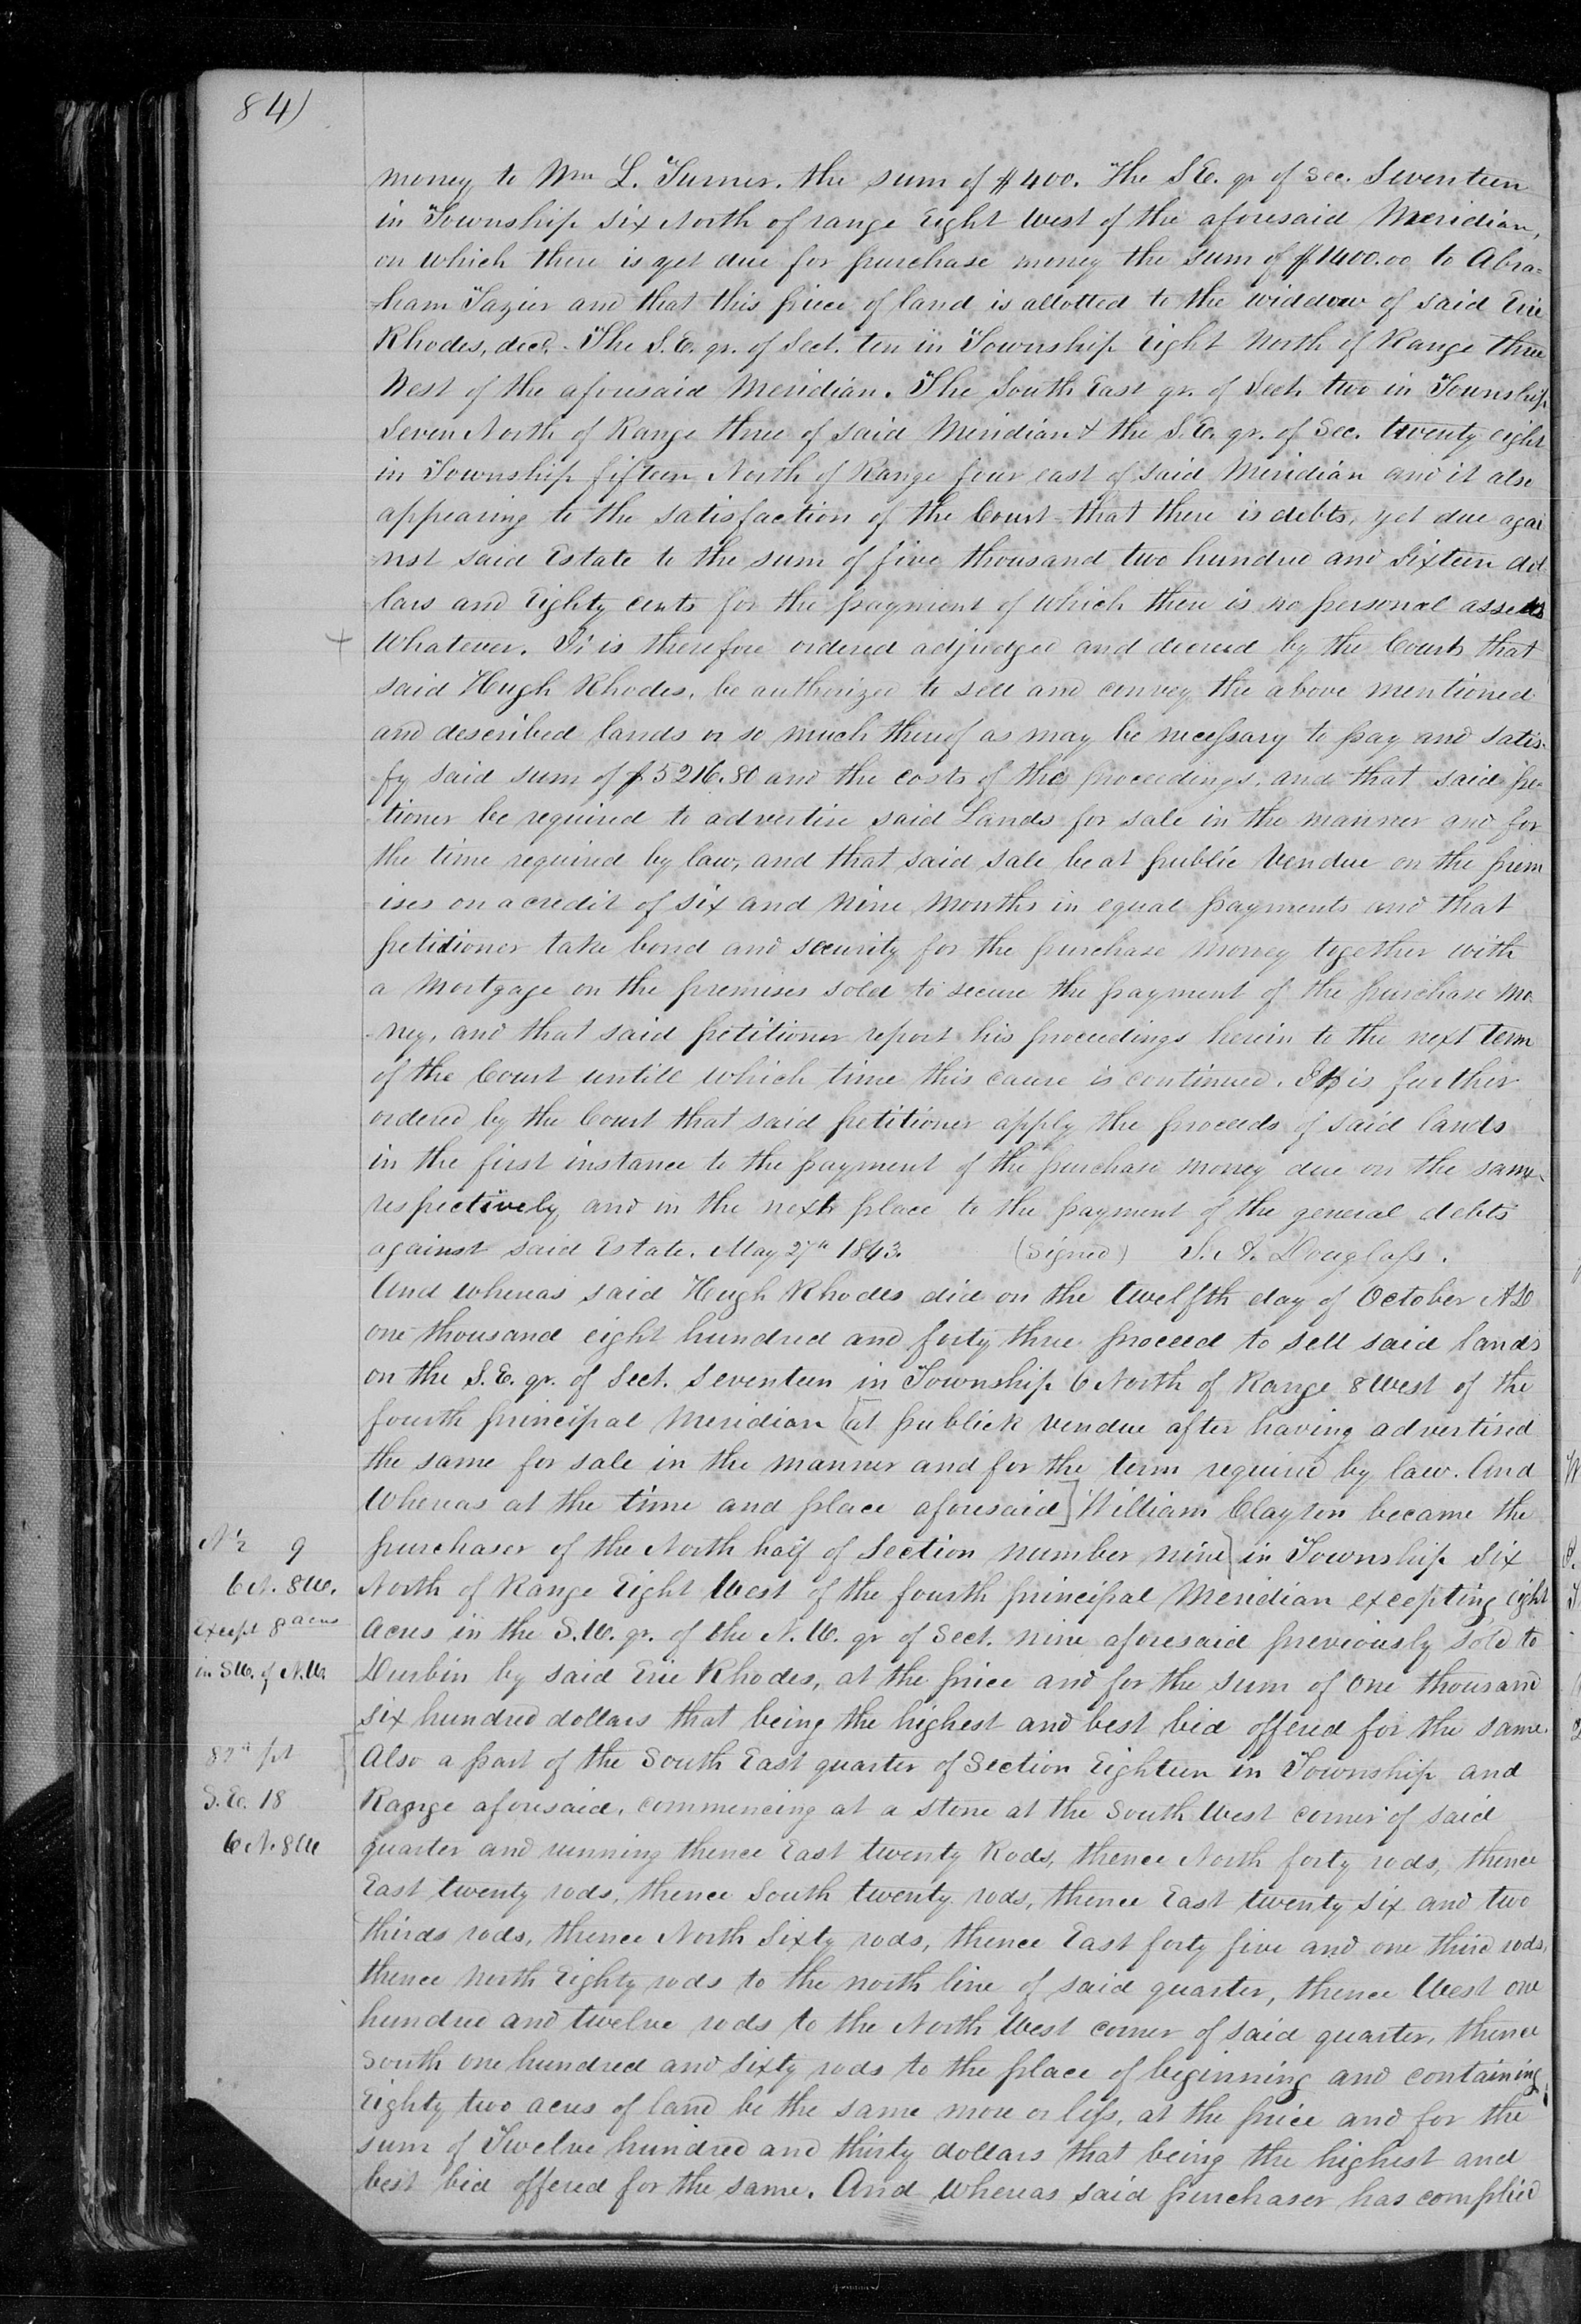 84)
money to Wm L. Turner. the sum of $400. The S.E. qr of Sec. Seventeen
in Township Six North of range Eight West of the aforesaid Meridian,
on which there is yet due for purchase money the sum of $1400.00 to Abra=
-ham Tazier and that this piece of land is allotted to the widdow of said Erie
Rhodes, decd. The S.E. qr. of Sect. ten in Township Eight North of Range three
West of the aforesaid Meridian. The South East qr. of Sect. two in Township
Seven North of Range three of said Meridian & the S.E. qr. of Sec. twenty eight
in Township fifteen North of Range four east of said Meridian and it also
appearing to the satisfaction of the Court that there is debts, yet due agai
-nst said Estate to the sum of five thousand two hundred and Sixteen dol
-lars and Eighty cents for the payment of which there is no personal assets
+ Whatever. It is therefore ordered adjudged and decreed by the Court that
said Hugh Rhodes, be authorized to sell and convey the above mentioned
and described lands or so much thereof as may be necessary to pay and satis-
fy said sum of $5216.80 and the costs of the proceedings, and that said pe-
tioner be required to advertise said Lands for sale in the manner and for
the time required by law, and that said sale be at public Vendue on the prem
ises on a credit of six and nine months in equal payments and that
petitioner take bond and security for the purchase money together with
a Mortgage on the premises sold to secure the payment of the purchase mo
-ney, and that said petitioner report his proceedings herein to the next term
of the Court untill which time this cause is continued. It is further
ordered by the Court that said petitioner apply the proceeds of said lands
in the first instance to the payment of the purchase money due on the same
respectively and in the next place to the payment of the general debts
against said Estate. May 27th 1843. (Signed) S. A. Douglass.
And whereas said Hugh Rhodes did on the twelfth day of October A.D
one thousand eight hundred and forty three proceed to sell said lands
on the S.E. qr. of Sect. Seventeen in Township 6 North of Range 8 West of the
fourth principal Meridian [at publick vendue after having advertised
the same for sale in the manner and for the term required by law. And
Whereas at the time and place aforesaid] William Clayton became the
N ½ 9 purchaser of the North half of Section number nine] in Township Six
6 N. 8 W. North of Range Eight West of the fourth principal Meridian excepting eight
Except 8 acres Acres in the S.W. qr. of the N.W. qr of Sect. nine aforesaid previously sold to
in S.W. of N.W. Durbin by said Erie Rhodes, at the price and for the sum of One thousand
six hundred dollars that being the highest and best bid offered for the same.
82a pt [Also a part of the South East quarter of Section Eighteen in Township and
S.E. 18 Range aforesaid, commencing at a stone at the South West corner of said
6 N. 8 W quarter and running thence East twenty Rods, thence North forty rods, thence
East twenty rods, thence South twenty rods, thence East twenty six and two
thirds rods, thence North Sixty rods, thence East forty five and one third rods,
thence North Eighty rods to the north line of said quarter, thence West one
hundred and twelve rods to the North West corner of said quarter, thence
South one hundred and sixty rods to the place of beginning and containing
Eighty two acres of land be the same more or less, at the price and for the
sum of Twelve hundred and thirty dollars that being the highest and
best bid offered for the same. And whereas said purchaser has complied